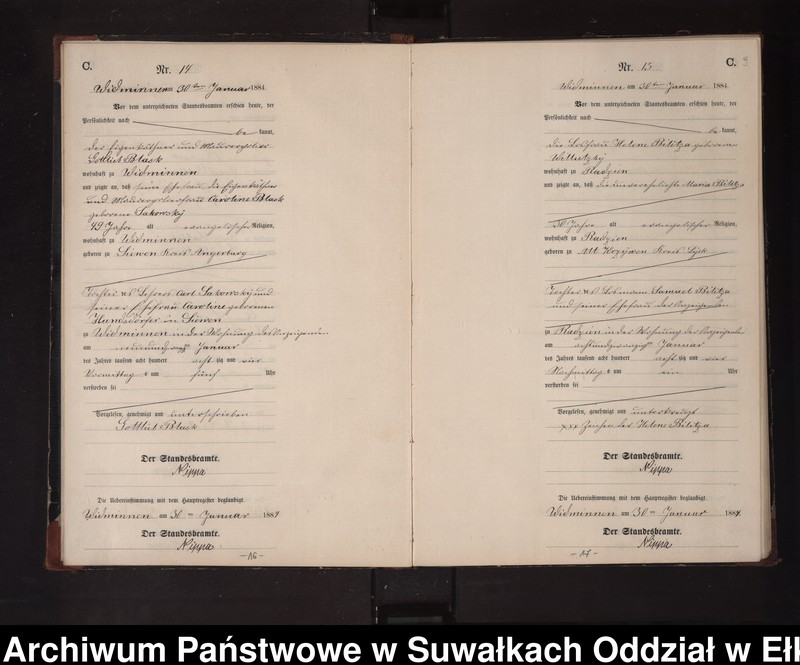 C.
Nr. 14
Widminnen am 30ten Januar 1884
Vor dem unterzeichneten Standesbeamten erschien heute, der
Persönlichkeit nach
be kannt,
der Eigenkäthner und
Gottlieb Black
wohnhaft zu Widminnen
und zeigte an, daß seine Ehefrau, die Eigenkäthner
und Caroline Black
geborene Sakowsky
49 Jahre alt evangelischer Religion,
wohnhaft zu Widminnen
geboren zu Siewen Kreis Angerburg
Tochter des Carl Sakowsky und
seiner Ehefrau Caroline geborenen
in Siewen
zu Widminnen in der Wohnung des Anzeigenden
am neunundzwanzigsten Januar
des Jahres tausend acht hundert acht zig und vier
Vormittag s um fünf Uhr
verstorben sei
Vorgelesen, genehmigt und unterschrieben
Gottlieb Black
Der Standesbeamte.
Nippa
Die Uebereinstimmung mit dem Hauptregister beglaubigt.
Widminnen am 30ten Januar 1884
Der Standesbeamte.
Nippa
- 16 -
C.
Nr. 15
Widminnen am 30ten Januar 1884
Vor dem unterzeichneten Standesbeamten erschien heute, der
Persönlichkeit nach
be kannt,
die Losfrau Helene Bilitza geborene
Willutzky
wohnhaft zu Radzien
und zeigte an, daß die unverehelichte Maria Bilitza
Jahre alt evangelischer Religion,
wohnhaft zu Radzien
geboren zu Kreis Lyck
Tochter des Losmann Samuel Bilitza
und seiner Ehefrau der Anzeigenden
zu Radzien in der Wohnung der Anzeigenden
am achtundzwanzigsten Januar
des Jahres tausend acht hundert acht zig und vier
Nachmittag s um ein Uhr
verstorben sei
Vorgelesen, genehmigt und unterkreuzt
xxx Zeichen der Helene Bilitza
Der Standesbeamte.
Nippa
Die Uebereinstimmung mit dem Hauptregister beglaubigt.
Widminnen am 30ten Januar 1884.
Der Standesbeamte.
Nippa
- 17 -
Archiwum Państwowe w Suwałkach Oddział w Ełk